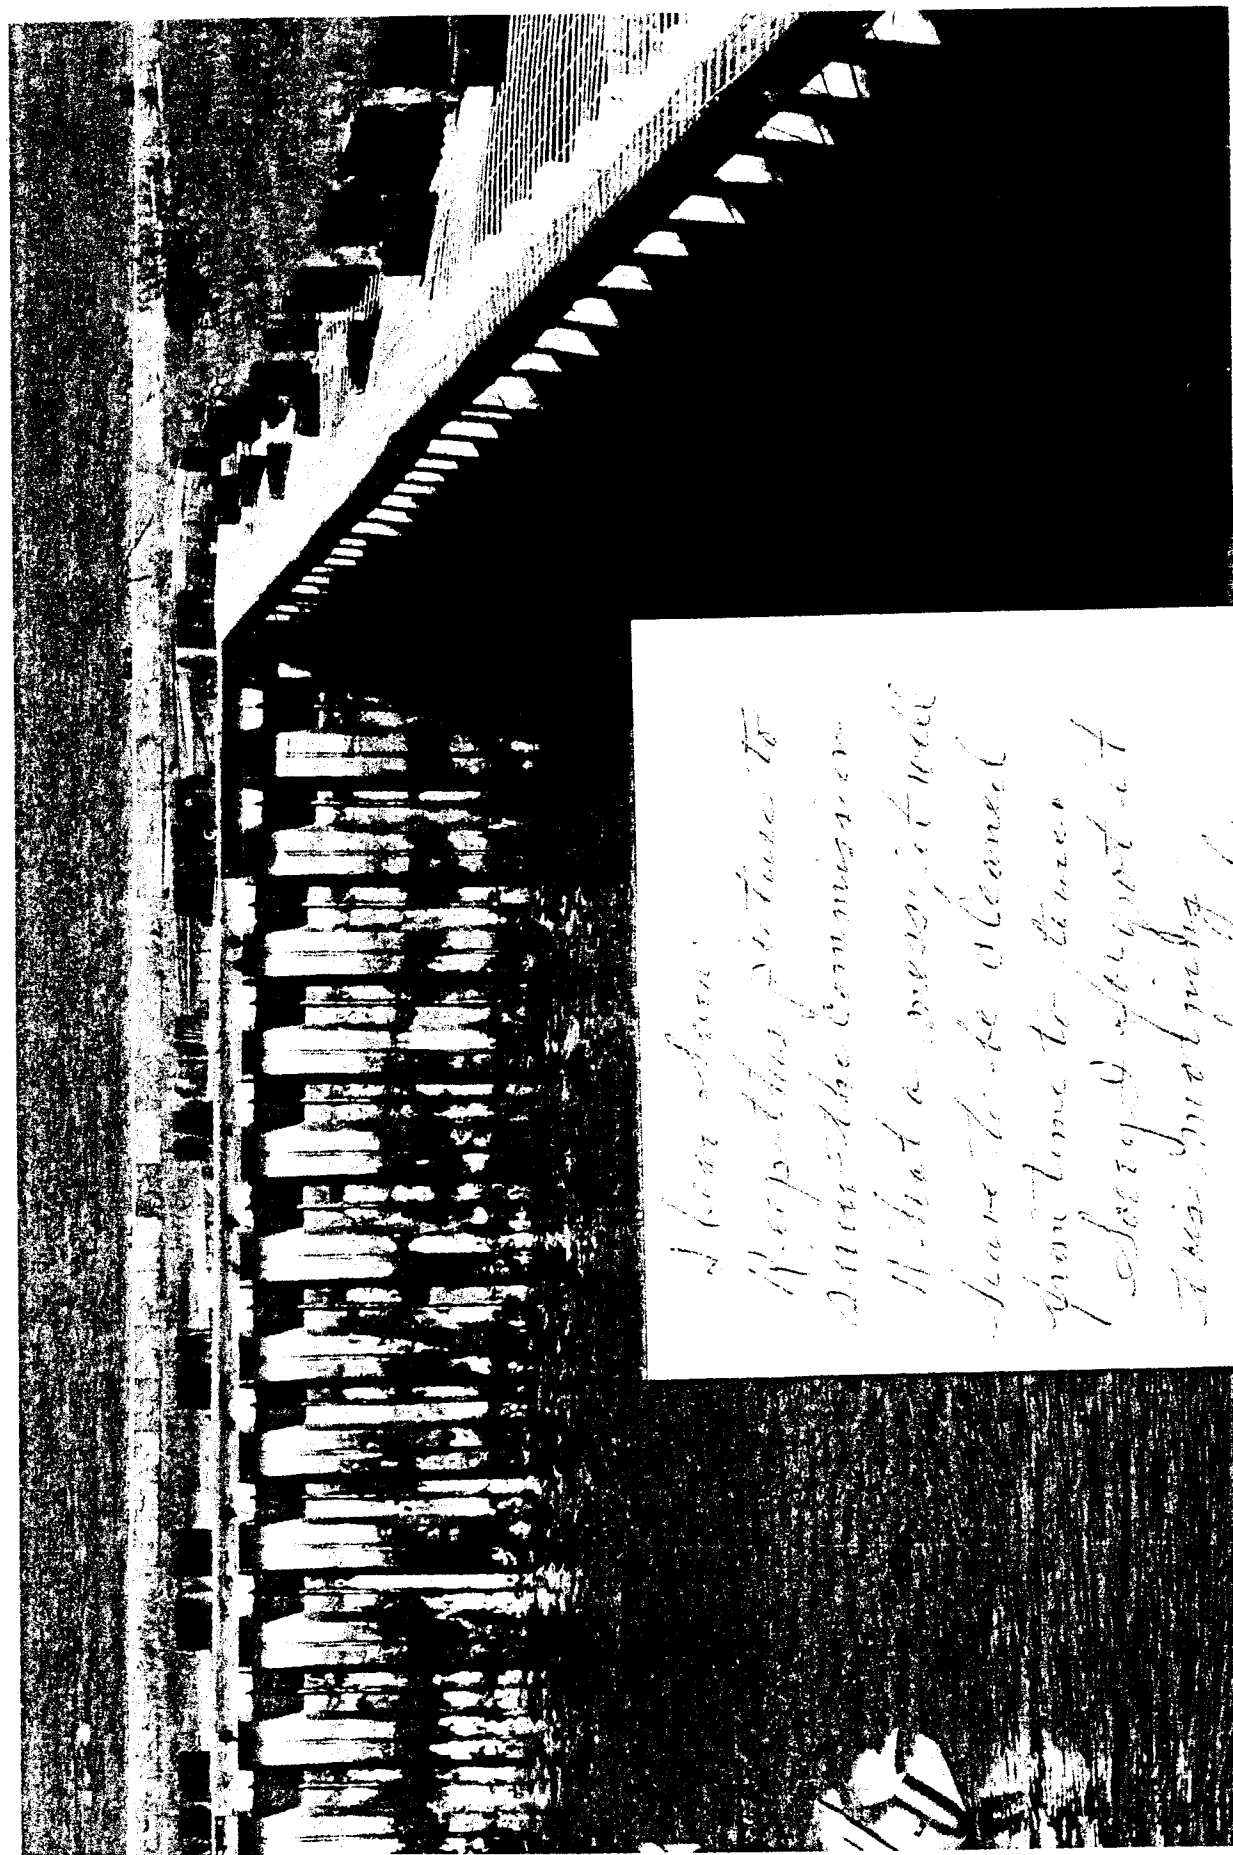 Dear Sirs:
Keep this picture to
show the Commission
What a mess it will
have to be cleaned
from time to time
Sorry I forgot it
this morning